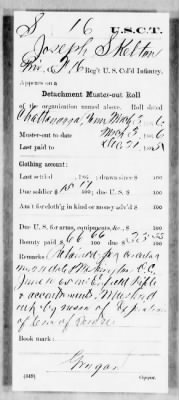 S 16 U.S.C.T.
Joseph Skelton
Co. 16 Reg't U. S. Col'd Infantry.
Appears on a
Detachment Muster-out Roll
of the organization named above. Roll dated
Chattanooga, Tenn Mar 3, 186 6.
Muster-out to date Mar 3, 186 6
Last paid to Dec 21, 186
Clothing account:
Last settled , 186 ; drawn since $ 100
Due soldier $ 15 17/100; due U. S. $ 100
Am't for cloth'g in kind or money adv'd $ 100
Due U. S. for arms, equipments, &c., $ 100
Bounty paid $ 66 66/100; due $ 33 33/100
Remarks: Retained pay
D.C.
June 10 Enfield rifle
& accoutrements. Mustered
out by reason of expiration
of term of service
Book mark:
(349) Copyist.